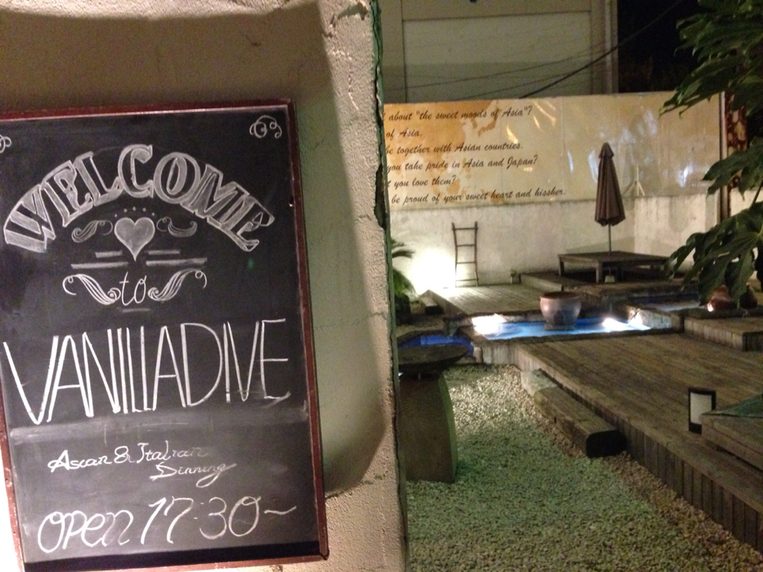 WELCOME
to
VANILLADIVE
Asian & Italian
Dinning
open 17:30~
about "the sweet moods of Asia"?
of Asia.
be together with Asian countries.
you take pride in Asia and Japan?
t you love them?
be proud of your sweet heart and hissher.